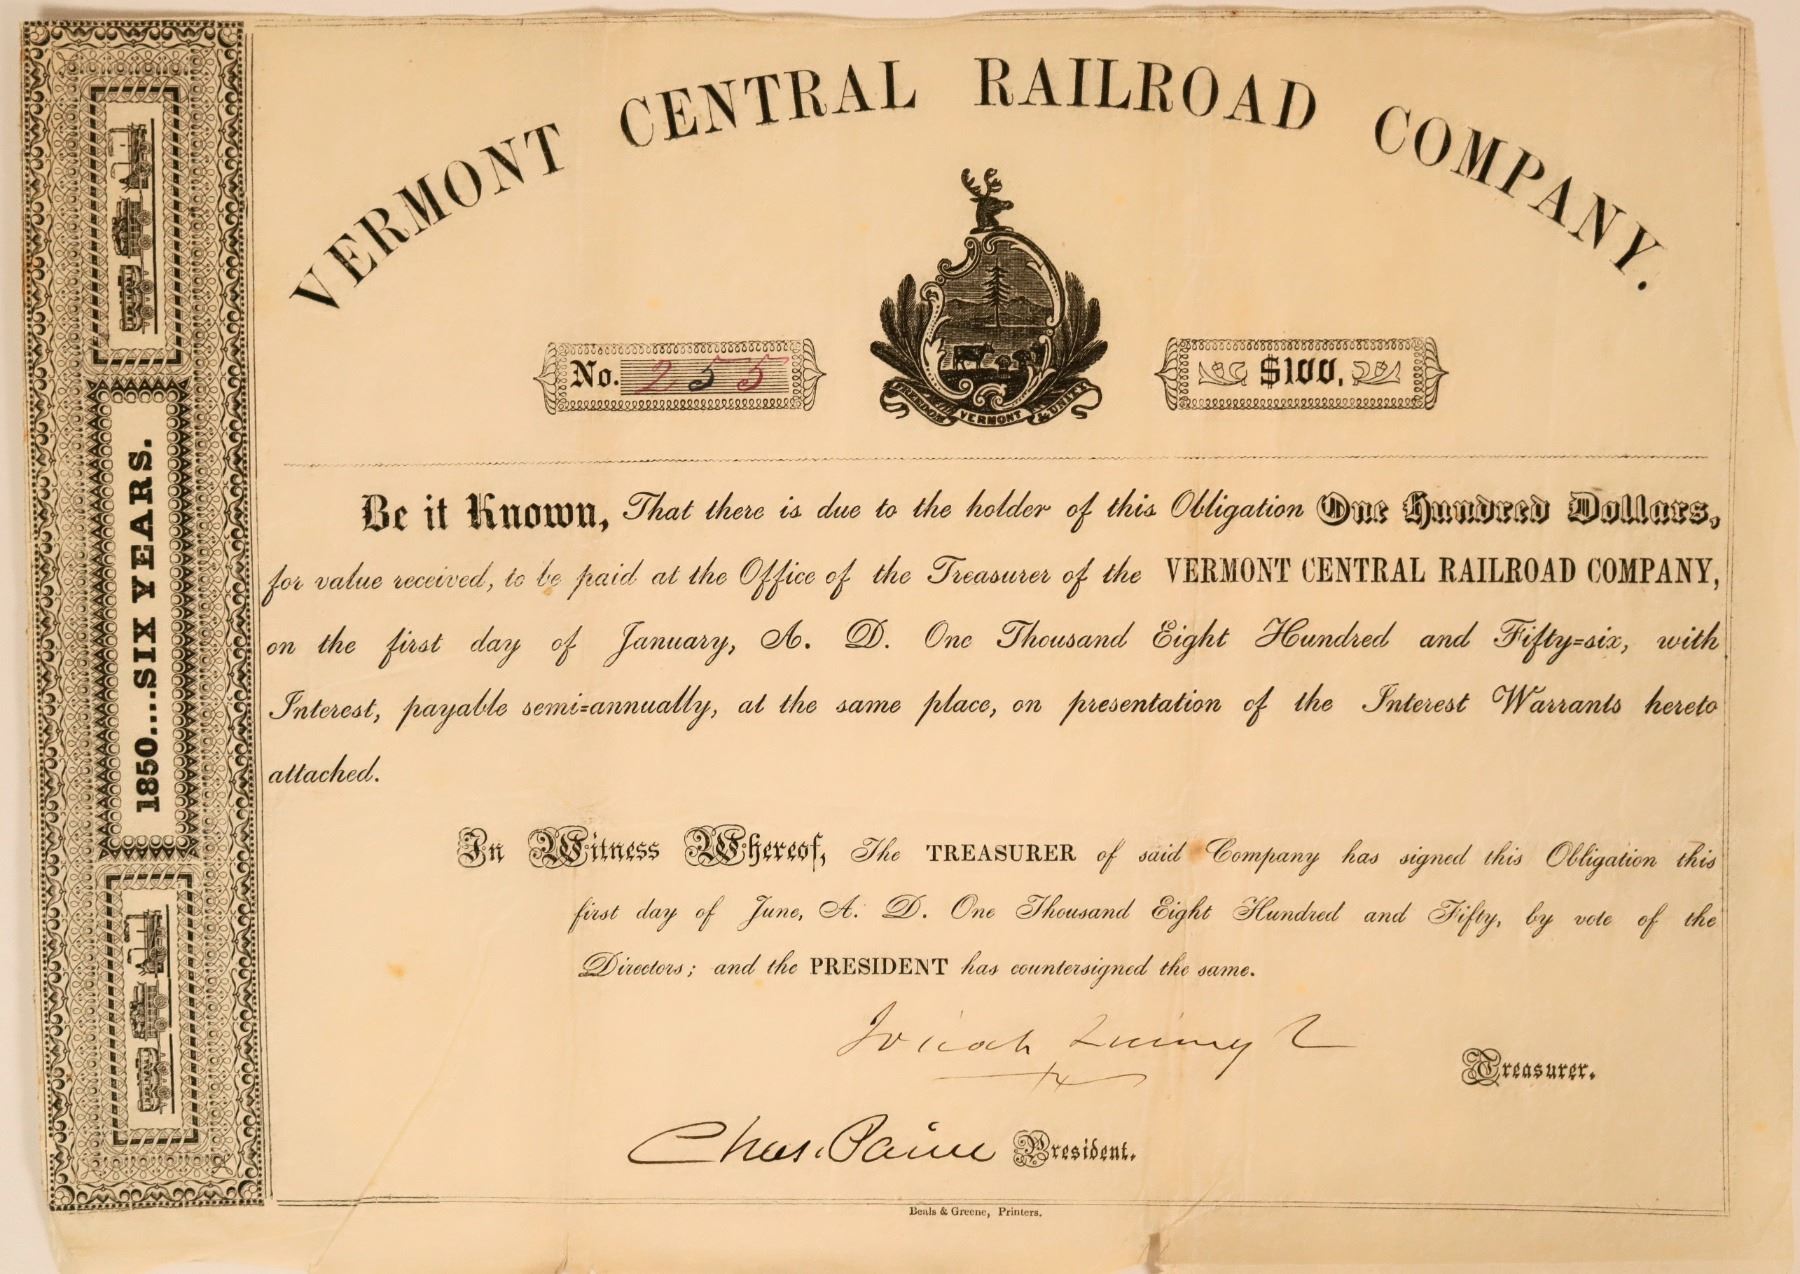 VERMONT CENTRAL RAILROAD COMPANY.
No. 255
FREEDOM VERMONT & UNITY
$100.
1850....SIX YEARS.
Be it Known, That there is due to the holder of this Obligation One Hundred Dollars,
for value received, to be paid at the Office of the Treasurer of the VERMONT CENTRAL RAILROAD COMPANY,
on the first day of January, A. D. One Thousand Eight Hundred and Fifty=six, with
Interest, payable semi=annually, at the same place, on presentation of the Interest Warrants hereto
attached.
In Witness Whereof, The TREASURER of said Company has signed this Obligation this
first day of June, A. D. One Thousand Eight Hundred and Fifty, by vote of the
Directors; and the PRESIDENT has countersigned the same.
Josiah Quincy Jr
Treasurer.
Chas. Paine President.
Beals & Greene, Printers.